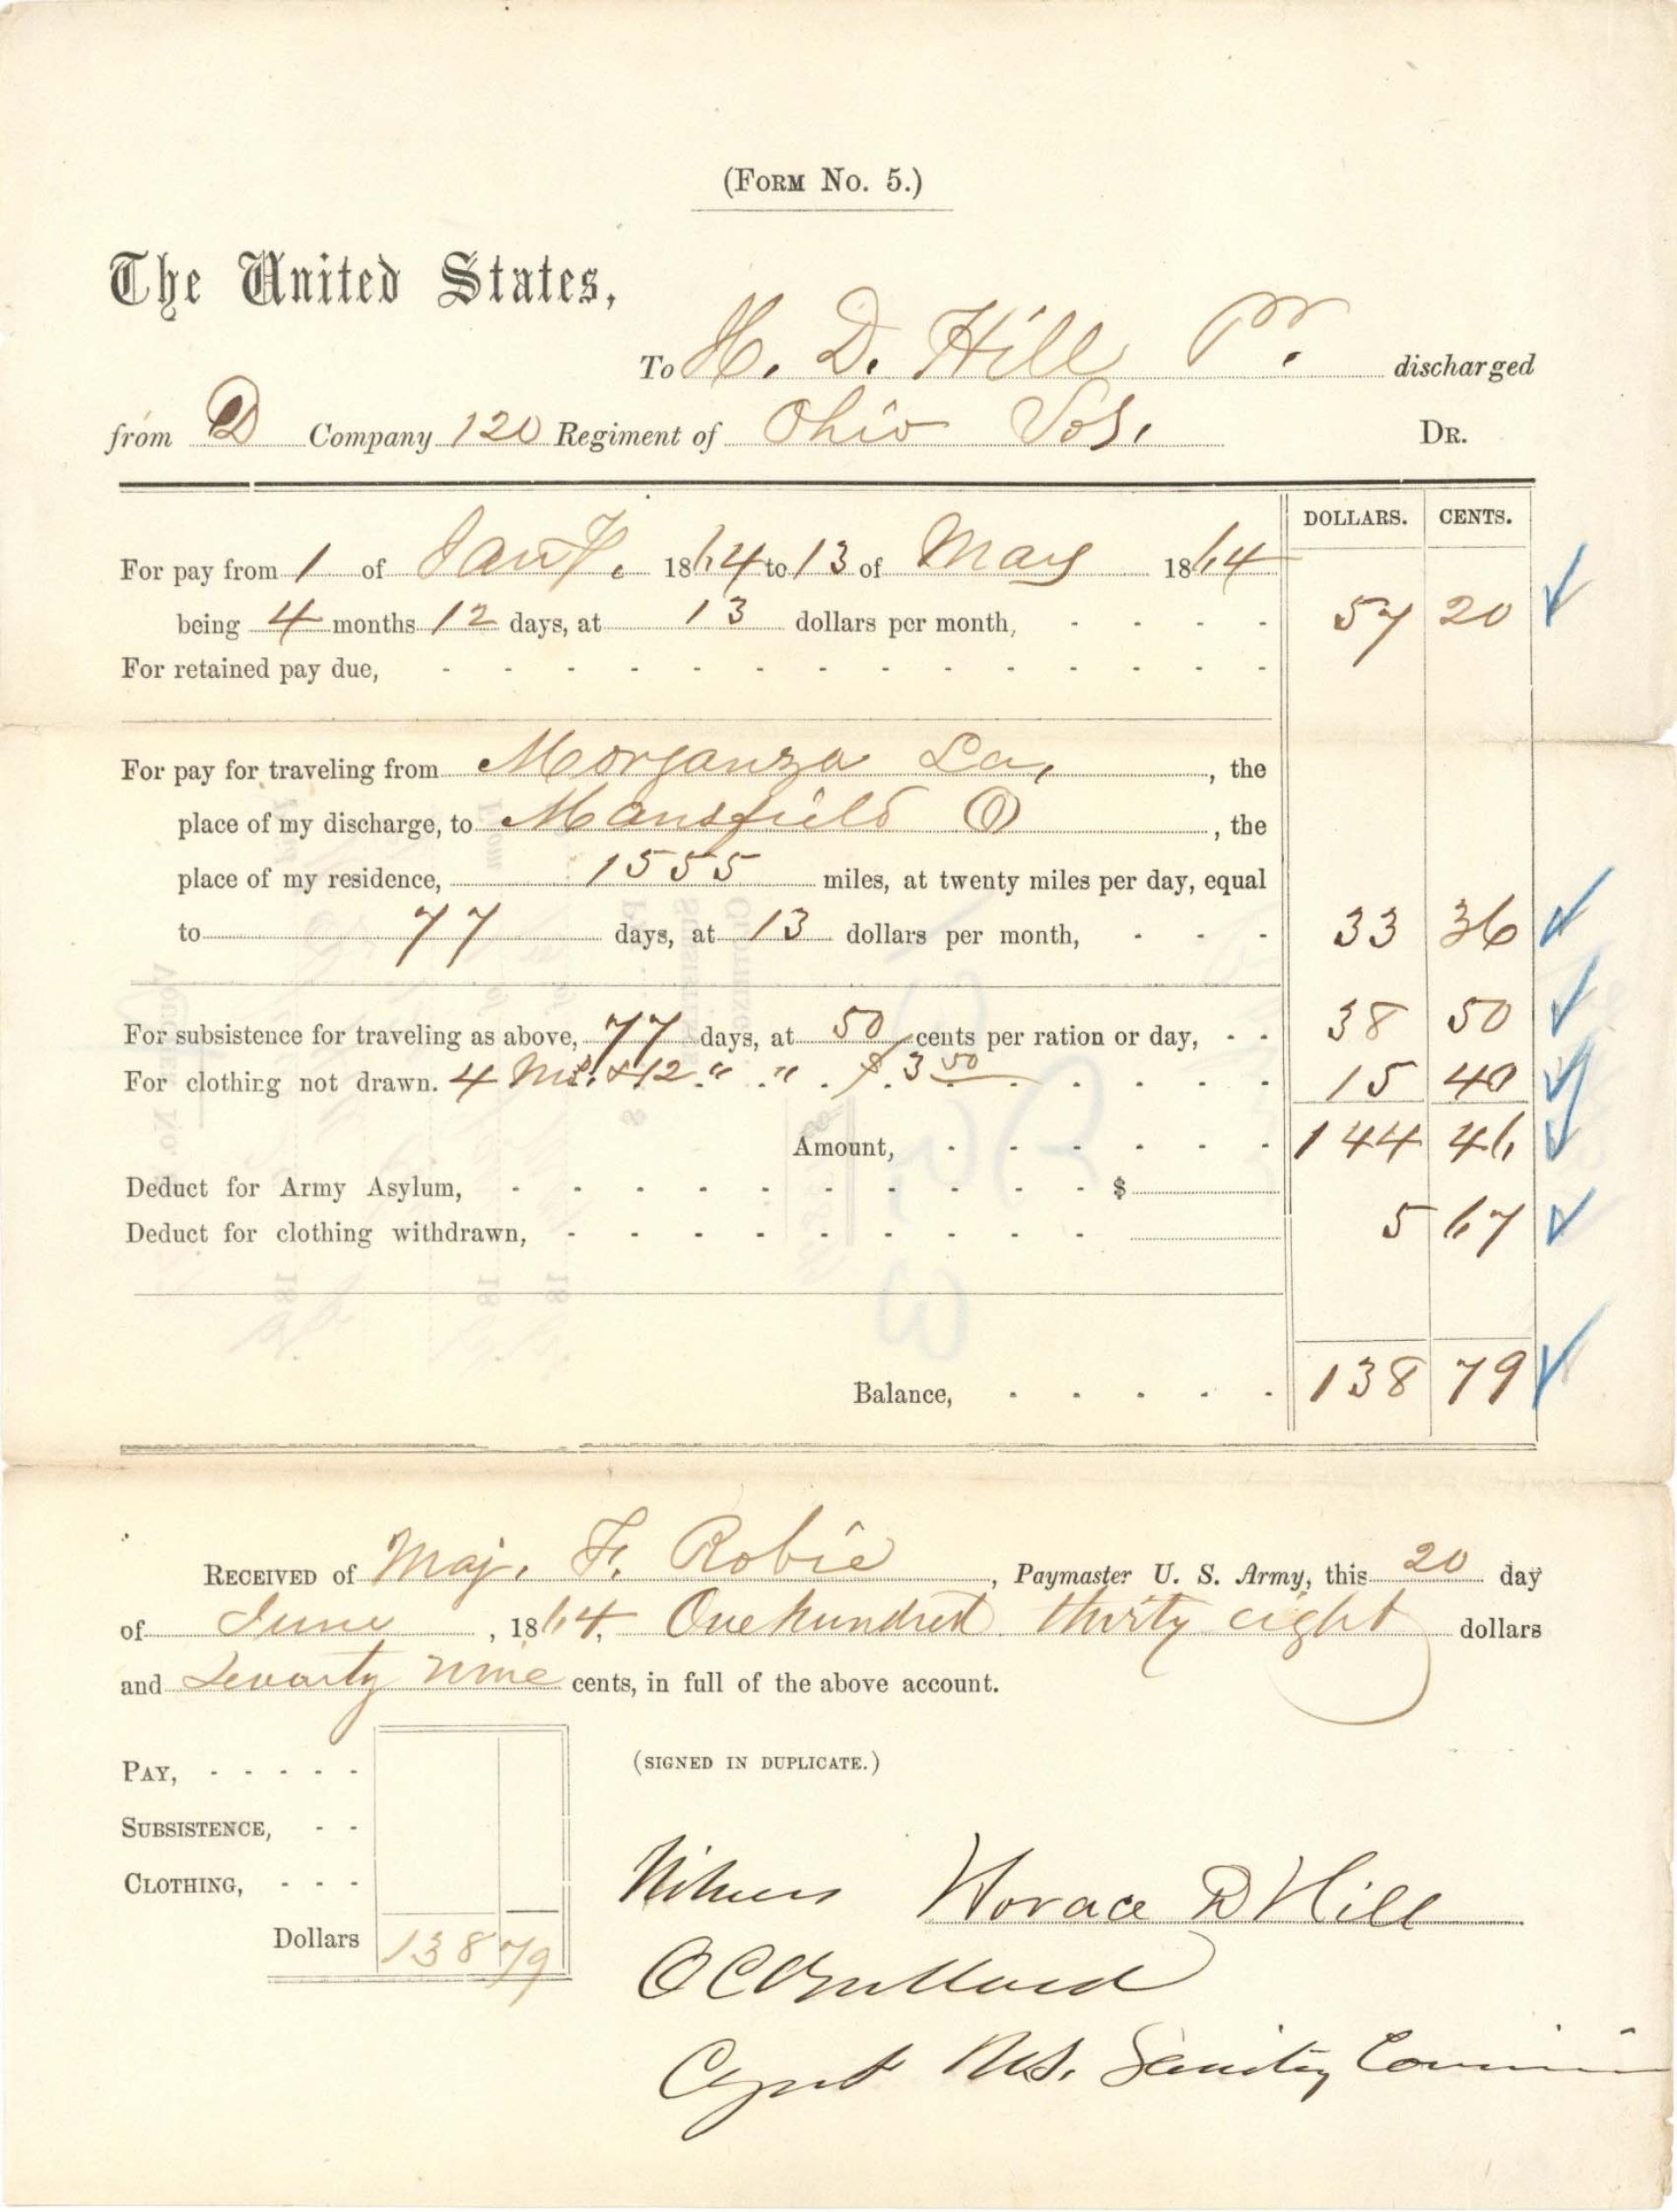 (FORM No. 5.)
The United States,
To H. D. Hill Pr. discharged
from D Company 120 Regiment of Ohio Vols. DR.
DOLLARS. CENTS.
For pay from 1 of Jany. 1864 to 13 of May 1864
being 4 months 12 days, at 13 dollars per month, - - - - 57 20
For retained pay due, - - - - - - - - - - - - - -
For pay for traveling from Morganza La, , the
place of my discharge, to Mansfield O , the
place of my residence, 1555 miles, at twenty miles per day, equal
to 77 days, at 13 dollars per month, - - - 33 36
For subsistence for traveling as above, 77 days, at 50 cents per ration or day, - - 38 50
For clothing not drawn. 4 Ms. & 12 " " . $ . 3 50 . . . . - 15 40
Amount, - - - - - - 144 46
Deduct for Army Asylum, - - - - - - - - - - $
Deduct for clothing withdrawn, - - - - - - - - - 5 67
Balance, - - - - - 138 79
RECEIVED of Maj. F. Robie , Paymaster U. S. Army, this 20 day
of June , 1864. One hundred thirty eight dollars
and Seventy nine cents, in full of the above account.
PAY, - - - - -
(SIGNED IN DUPLICATE.)
SUBSISTENCE, - -
CLOTHING, - - -
Witness Horace D Hill
Dollars 138 79
Agent U.S. Sanitary Commission